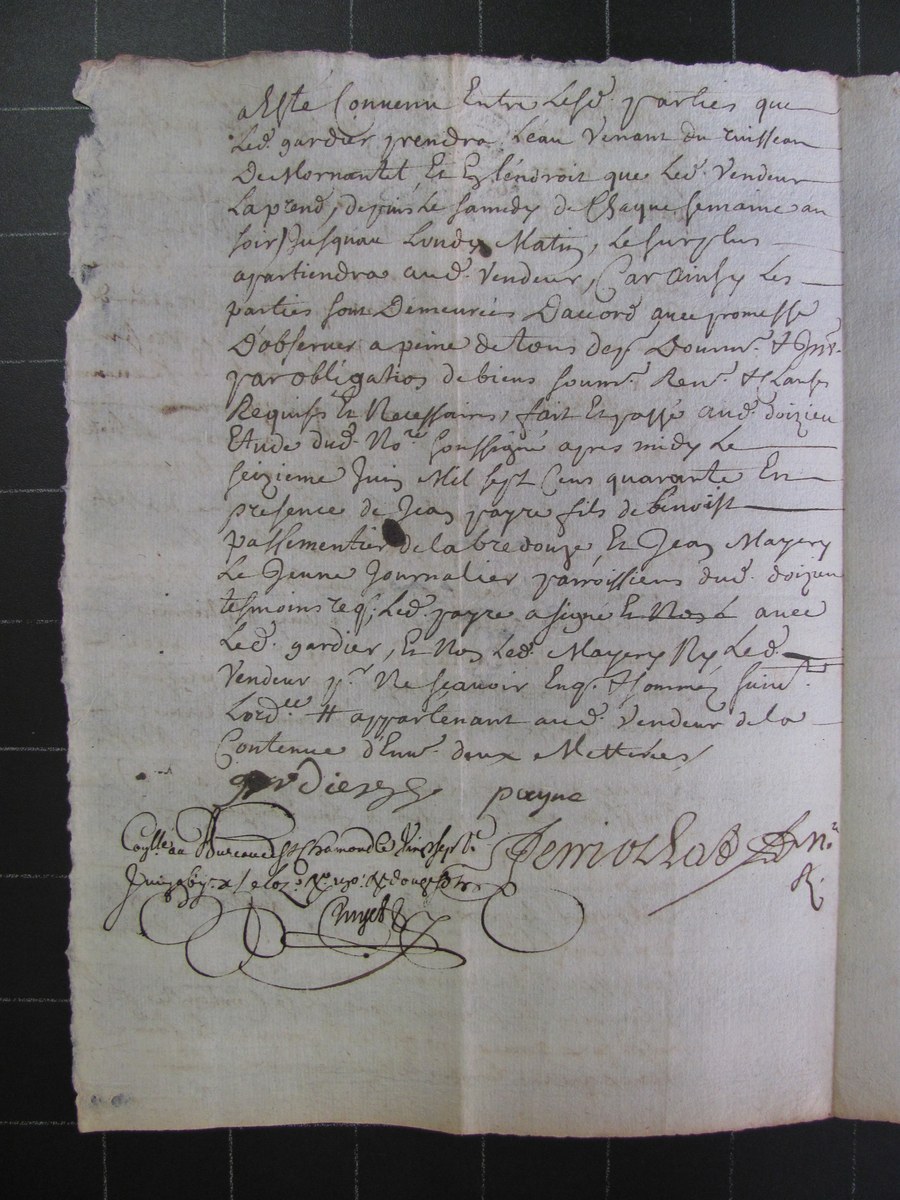 a Esté Convenu Entre Lesd. parties que
Led. gardier prendra L'eau Venant du ruisseau
De Mornantet, Et En L'endroit que Led. Vendeur
La prend, depuis Le samedy de Chaque semaine au
soir Jusquau Lundy Matin, Le surplus
apartiendra aud. Vendeur, Car Ainsy Les
parties sont Demeurées D'accord avec promesse
D'observer a peine de tous desp. Domm. &
par obligation de biens soum. Ren. & Clauses
Requises Et Necessaires, fait Et passé aud. doizieu
Etude dud. No.re soussigné apres midy Le
seizieme Juin Mil sept Cens quarante En
presence de Jean payre fils de benoist
passementier de la bredouze, Et Jean Mayery
Le Jeune Journalier parroissiens dud. doizieu
tesmoins req. Led. payre a signé Et Non L avec
Led. gardier, Et Non Led. Mayery Ny Led.
Vendeur p.r Ne scavoir Enq. & sommés suiv.t
L'ord.ce # appartenant aud. Vendeur de la
Contenue d'Env. deux Metterées
gardier payre
au Bureau de St Chamond Le Vingt sept
Juin